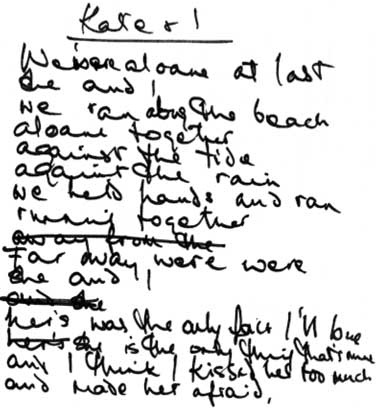 Kate & I
We were aloane at last
she and I
we ran along the beach
aloane together
against the tide
against the rain
we held hands and ran
running together
away from the
Far away were were
she and I
and she
her's was the only face I'll love
her's she is the only thing that's mine
and I think I kissed her too much
and made her afraid,